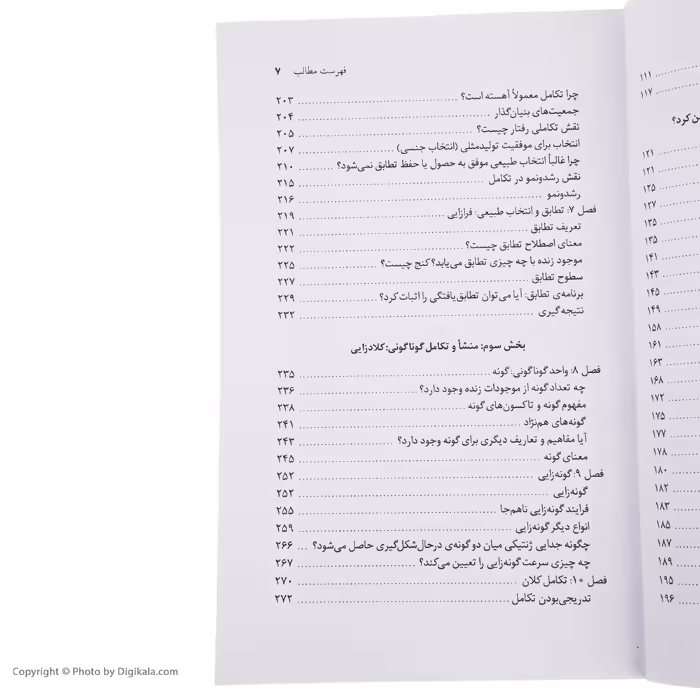 فهرست مطالب ۷
چرا تکامل معمولاً آهسته است؟ ۲۰۳
جمعیت‌های بنیان‌گذار ۲۰۴
نقش تکاملی رفتار چیست؟ ۲۰۵
انتخاب برای موفقیت تولیدمثلی (انتخاب جنسی) ۲۰۷
چرا غالباً انتخاب طبیعی موفق به حصول یا حفظ تطابق نمی‌شود؟ ۲۱۰
نقش رشدونمو در تکامل ۲۱۵
رشدونمو ۲۱۶
فصل ۷: تطابق و انتخاب طبیعی: فرازایی ۲۱۹
تعریف تطابق ۲۲۱
معنای اصطلاح تطابق چیست؟ ۲۲۲
موجود زنده با چه چیزی تطابق می‌یابد؟ کنج چیست؟ ۲۲۵
سطوح تطابق ۲۲۷
برنامه‌ی تطابق: آیا می‌توان تطابق‌یافتگی را اثبات کرد؟ ۲۲۹
نتیجه گیری ۲۳۲
بخش سوم: منشأ و تکامل گوناگونی: کلادزایی
فصل ۸: واحد گوناگونی: گونه ۲۳۵
چه تعداد گونه از موجودات زنده وجود دارد؟ ۲۳۶
مفهوم گونه و تاکسون‌های گونه ۲۳۸
گونه‌های هم‌نژاد ۲۴۱
آیا مفاهیم و تعاریف دیگری برای گونه وجود دارد؟ ۲۴۳
معنای گونه ۲۴۵
فصل ۹: گونه‌زایی ۲۵۲
گونه‌زایی ۲۵۲
فرایند گونه‌زایی ناهم‌جا ۲۵۵
انواع دیگر گونه‌زایی ۲۵۹
چگونه جدایی ژنتیکی میان دو گونه‌ی درحال‌شکل‌گیری حاصل می‌شود؟ ۲۶۶
چه چیزی سرعت گونه‌زایی را تعیین می‌کند؟ ۲۶۷
فصل ۱۰: تکامل کلان ۲۷۰
تدریجی‌بودن تکامل ۲۷۲
۱۱۱
۱۱۷
کرد؟
۱۲۱
۱۲۱
۱۲۵
۱۲۷
۱۳۵
۱۳۵
۱۴۱
۱۴۳
۱۴۵
۱۴۹
۱۵۸
۱۶۱
۱۶۳
۱۶۸
۱۷۲
۱۷۵
۱۷۷
۱۷۸
۱۸۰
۱۸۲
۱۸۳
۱۸۵
۱۸۷
۱۸۹
۱۹۵
۱۹۶
Copyright © Photo by Digikala.com